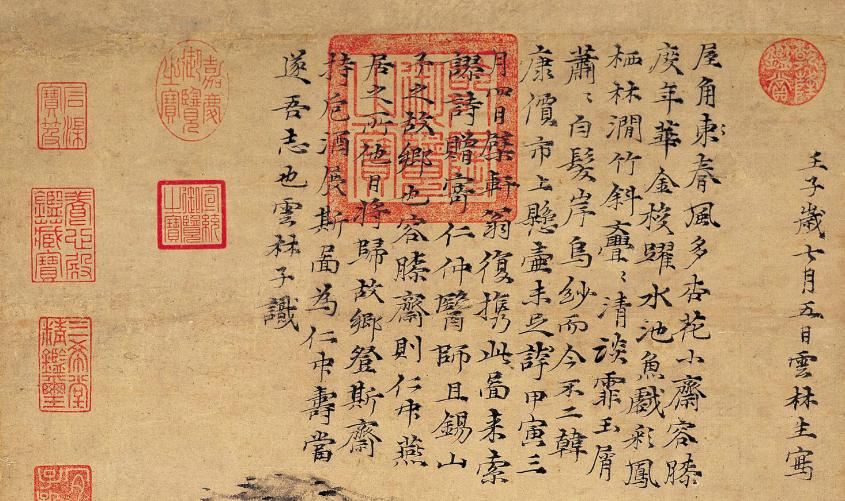 壬子歲七月五日雲林生寫
屋角東春風多杏花小齋容膝
度年華金梭躍水池魚戲彩鳳
栖林澗竹斜亹〻清談霏玉屑
蕭〻白髮岸烏紗而今不二韓
康價市上懸壺未足誇甲寅三
月四日蘗軒翁復携此啚來索
謬詩贈寄仁仲醫師且錫山
予之故鄉也容膝齋則仁中燕
居之所他日將歸故鄉登斯齋
持卮酒展斯啚為仁中壽當
遂吾志也雲林子識
乾隆鑑賞
乾隆御覽之寶
嘉慶御覽之寶
宣統御覽之寶
石渠寶笈
養心殿鑑藏寶
三希堂精鑑璽